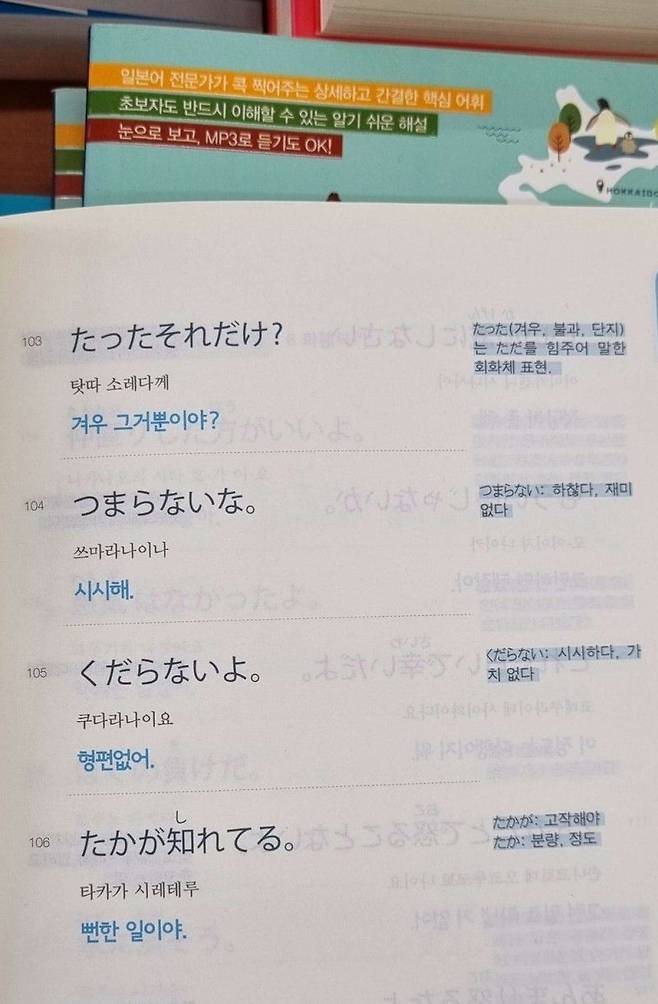 일본어 전문가가 콕 찍어주는 상세하고 간결한 핵심 어휘
초보자도 반드시 이해할 수 있는 알기 쉬운 해설
눈으로 보고, MP3로 듣기도 OK!
HOKKAIDO
103 たったそれだけ?
탓따 소레다께
겨우 그거뿐이야?
たった(겨우, 불과, 단지)
는 ただ를 힘주어 말한
회화체 표현.
104 つまらないな。
쓰마라나이나
시시해.
つまらない: 하찮다, 재미
없다
105 くだらないよ。
쿠다라나이요
형편없어.
くだらない: 시시하다, 가
치 없다
し
106 たかが知れてる。
타카가 시레테루
뻔한 일이야.
たかが: 고작해야
たか: 분량, 정도